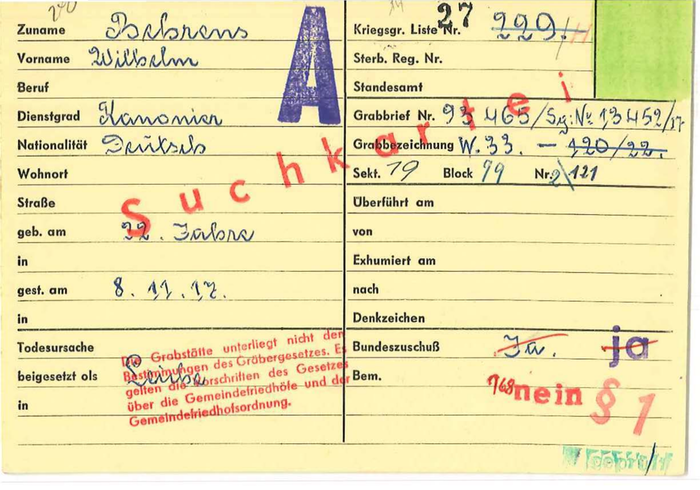 Zuname Behrens
Vorname Wilhelm
Beruf
Dienstgrad Kanonier
Nationalität Deutsch
Wohnort
Straße
geb. am 22. Jahre
in
gest. am 8. 11. 17.
in
Todesursache
beigesetzt als Leiche
in
A
Suchkartei
Die Grabstätte unterliegt nicht den
Bestimmungen des Gräbergesetzes. Es
gelten die Vorschriften des Gesetzes
über die Gemeindefriedhöfe und der
Gemeindefriedhofsordnung.
Kriegsgr. Liste Nr. 27 229/
Sterb. Reg. Nr.
Standesamt
Grabbrief Nr. 93465/Sg: No 13452/17
Grabbezeichnung W. 33. – 120/22.
Sekt. 19 Block 79 Nr. 2\121
Überführt am
von
Exhumiert am
nach
Denkzeichen
Bundeszuschuß Ja. ja
Bem.
nein § 1